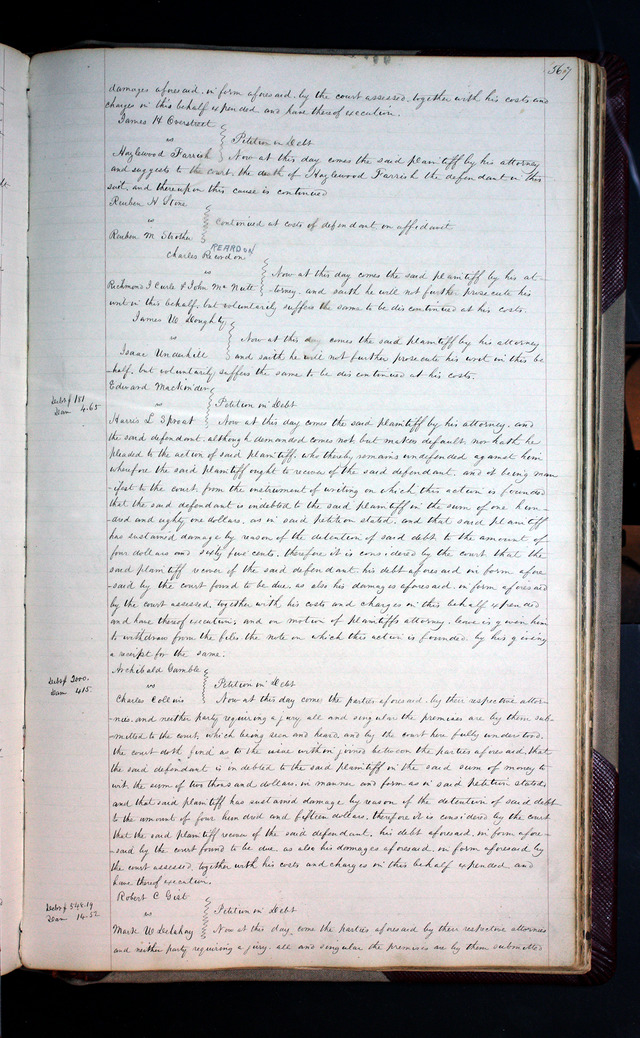 367
damages aforesaid, in form aforesaid, by the court assessed, together with his costs and
charges in this behalf expended and have thereof execution.
James H Overstreet
vs
Petition in Debt
Hazlewood Farrish
Now at this day comes the said plaintiff by his attorney
and suggests to the court, the death of Hazlewood Farrish the defendant in this
suit, and thereupon this cause is continued
Reuben N Stone
vs
continued at costs of defendant on affidavit
Reuben M Strother
REARDON
Charles Reardon
vs
Now at this day comes the said plaintiff by his at-
Richmond J Curle & John Mc Nutt
-torney, and saith he will not further prosecute his
writ in this behalf, but voluntarily suffers the same to be discontinued at his costs.
James W Doughty
vs
Now at this day comes the said plaintiff by his attorney
Isaac Underhill
and saith he will not further prosecute his writ in this be
-half, but voluntarily suffers the same to be discontinued at his costs.
Edward Mackinder
Debt $ 181
Dam 4.65
vs
Petition in Debt
Harris L Sproat
Now at this day comes the said plaintiff by his attorney, and
the said defendant, although demanded comes not but makes default, nor hath he
pleaded to the action of said plaintiff, who thereby remains undefended against him
wherefore the said plaintiff ought to recover of the said defendant, and it being man
-ifest to the court, from the instrument of writing on which this action is founded
that the said defendant is indebted to the said plaintiff in the sum of one hun-
-dred and eighty one dollars, as in said petition stated, and that said plaintiff
has sustained damage by reason of the detention of said debt to the amount of
four dollars and sixty five cents. therefore it is considered by the court that the
said plaintiff recover of the said defendant, his debt aforesaid in form afore
-said by the court found to be due, as also his damages aforesaid, in form aforesaid
by the court assessed, together with his costs and charges in this behalf expended
and have thereof execution, and on motion of plaintiffs attorney, leave is given him
to withdraw from the files the note on which this action is founded, by his giving
a receipt for the same.
Archibald Gamble
Debt $ 2000.
Dam 415.
vs
Petition in Debt
Charles Collins
Now at this day come the parties aforesaid, by their respective attor-
-nies, and neither party requiring a jury, all and singular the premises are by them sub-
-mitted to the court, which being seen and heard, and by the court here fully understood.
the court doth find as to the issue within joined between the parties aforesaid, that
the said defendant is indebted to the said plaintiff in the said sum of money to
wit the sum of two thousand dollars, in manner and form as in said petition stated,
and that said plaintiff has sustained damage by reason of the detention of said debt
to the amount of four hundred and fifteen dollars, therefore it is considered by the court
that the said plaintiff recover of the said defendant, his debt aforesaid, in form afore-
-said by the court found to be due, as also his damages aforesaid, in form aforesaid by
the court assessed, together with his costs and charges in this behalf expended, and
have thereof execution.
Robert C Gist
Debt $ 544.14
Dam 14.52
vs
Petition in Debt
Mark W Delahay
Now at this day, come the parties aforesaid by their respective attornies
and neither party requiring a jury, all and singular the premises are by them submitted